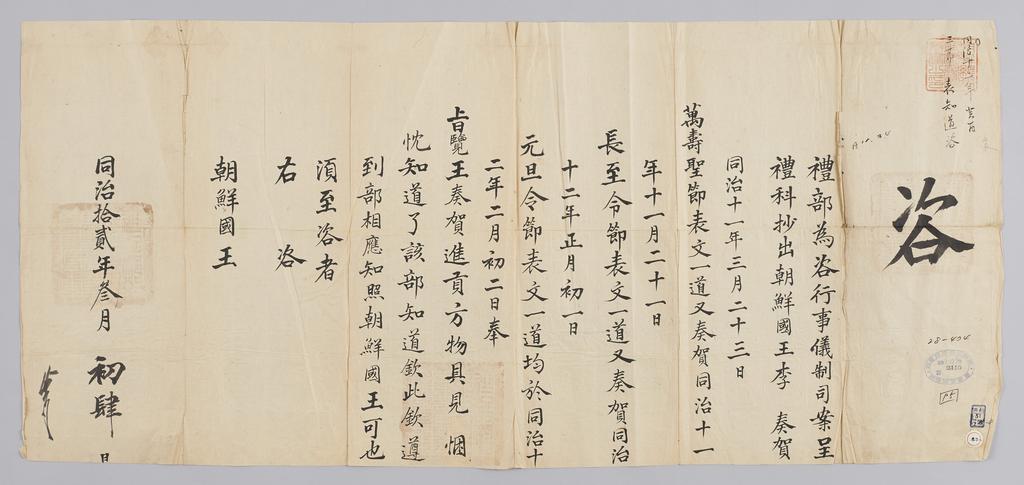 咨
禮部為咨行事儀制司案呈
禮科抄出朝鮮國王李 奏賀
同治十一年三月二十三日
萬壽聖節表文一道又奏賀同治十一
年十一月二十一日
長至令節表文一道又奏賀同治
十二年正月初一日
元旦令節表文一道均於同治十
二年二月初二日奉
旨覽王奏賀進貢方物具見 悃
忱知道了該部知道欽此欽遵
到部相應知照朝鮮國王可也
須至咨者
右 咨
朝鮮國王
同治拾貳年叁月 初肆 日
表知道咨
28-404